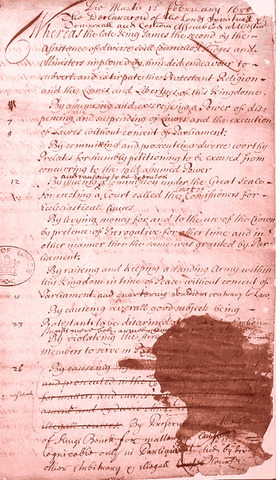 Die Martis 12 February 1688
The Declaration of the Lords Spirituall
Temporall and Com̄ons Assembled at Westm
Whereas the late King James the second by the
assistance of divers evill Councellors Judges and
Ministers imployed by him did endeavour to
subvert and extirpate the Protestant Religion
and the Lawes and Liberties of this Kingdome
By assuming and exercising a Power of dis-
pencing and suspending of Lawes and the execution
of Lawes without consent of Parliament;
By committing and prosecuting diverse worthy
Prelates for humbly petitioning to be excused from
concurring to the said assumed Power
and causing to be executed
12 By issueing a Commission under the Great seale
for erecting a Court called the Court of Com̄issioners for
Ecclesiasticall Causes
By levying money for and to the use of the Crown
by pretence of Prerogative for other time and in
other manner then the same was granted by Parl-
liament;
By raiseing and keeping a standing Army within
this Kingdom in time of Peace without consent of
Parliament and quartering souldiers contrary to Law
By causing severall good subjects being
23 Protestants to be disarmed
By violating the
Members to serve in Parl
26 By causing
and prosecuted in the
for matters and causes
By Prosecu
of Kings Bench for matters and causes
cognizable only in Parliament and by
other Arbitrary & illegall Courses